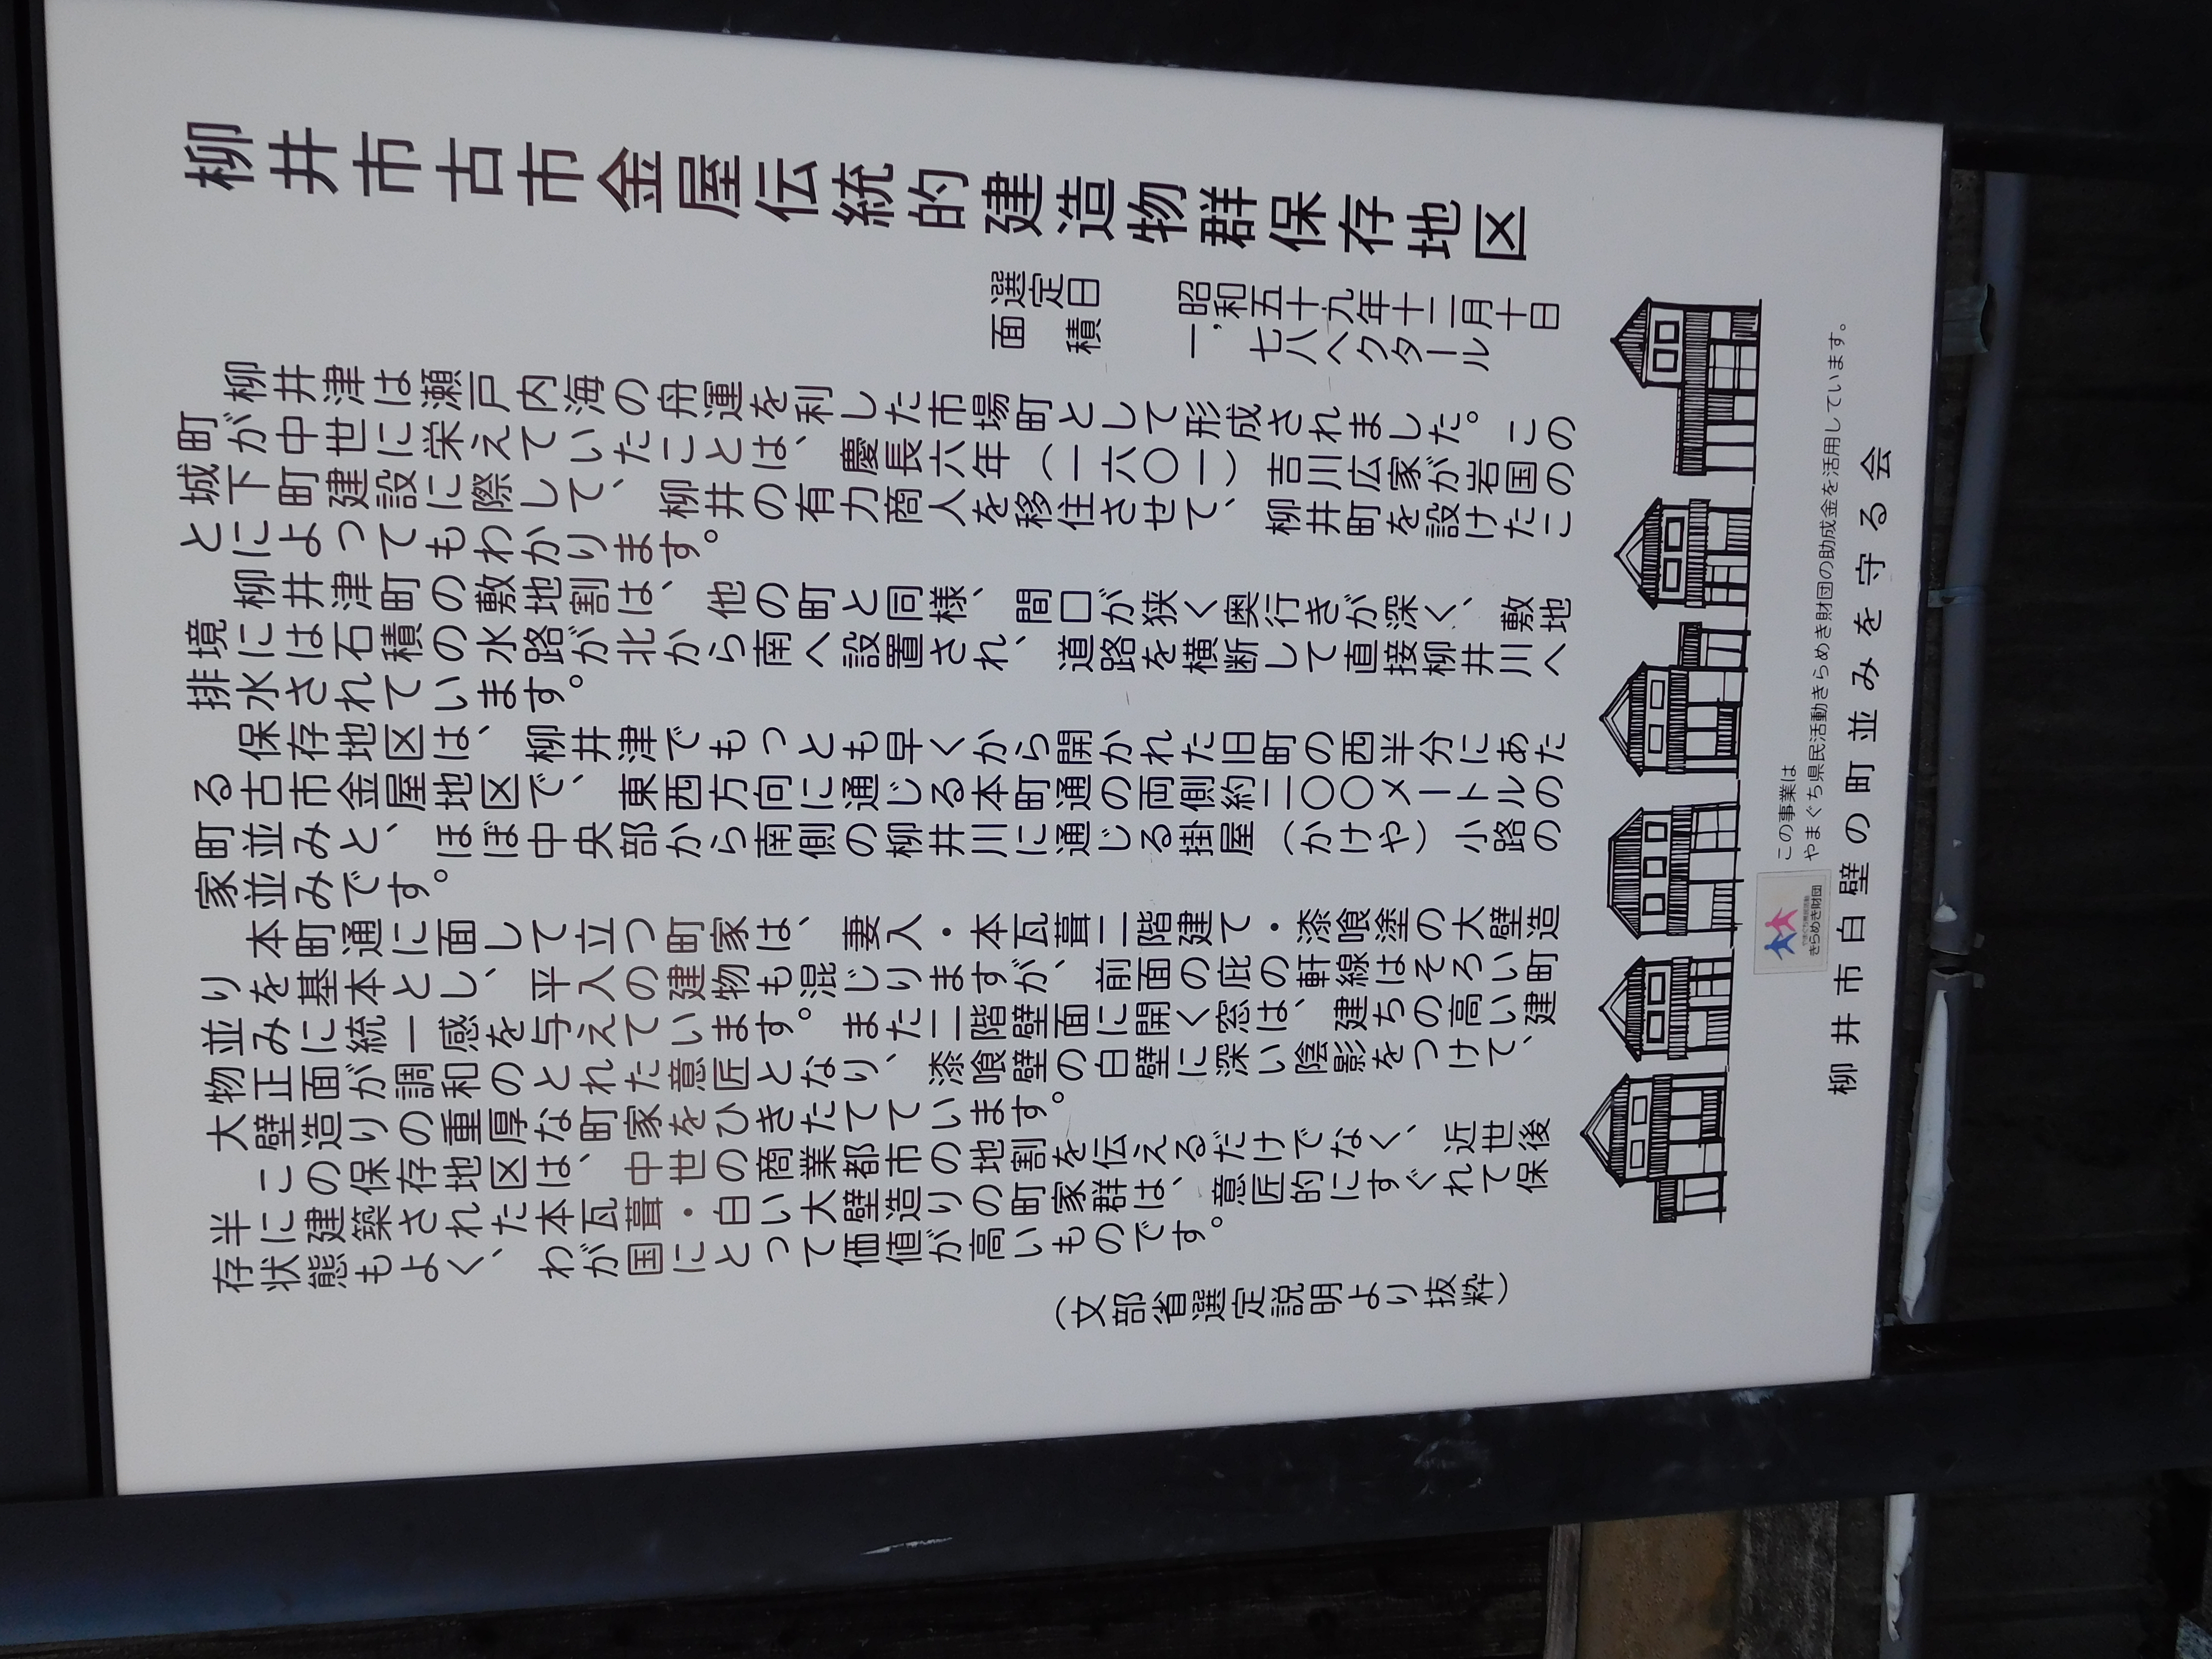 柳井市古市金屋伝統的建造物群保存地区
選定日　昭和五十九年十二月十日
面積　一,七八ヘクタール
柳井津は瀬戸内海の舟運を利した市場町として形成されました。この
町が中世に栄えていたことは、慶長六年(一六〇一)吉川広家が岩国の
城下町建設に際して、柳井の有力商人を移住させて、柳井町を設けたこ
とによってもわかります。
柳井津町の敷地割は、他の町と同様、間口が狭く奥行きが深く、敷地
境には石積の水路が北から南へ設置され、道路を横断して直接柳井川へ
排水されています。
保存地区は、柳井津でもっとも早くから開かれた旧町の西半分にあた
る古市金屋地区で、東西方向に通じる本町通の両側約二〇〇メートルの
町並みと、ほぼ中央部から南側の柳井川に通じる掛屋(かけや)小路の
家並みです。
本町通に面して立つ町家は、妻入・本瓦葺二階建て・漆喰塗の大壁造
りを基本とし、平入の建物も混じりますが、前面の庇の軒線はそろい町
並みに統一感を与えています。また二階壁面に開く窓は、建ちの高い建
物正面が調和のとれた意匠となり、漆喰壁の白壁に深い陰影をつけて、
大壁造りの重厚な町家をひきたてています。
この保存地区は、中世の商業都市の地割を伝えるだけでなく、近世後
半に建築された本瓦葺・白い大壁造りの町家群は、意匠的にすぐれて保
存状態もよく、わが国にとって価値が高いものです。
(文部省選定説明より抜粋)
きらめき財団
この事業は
やまぐち県民活動きらめき財団の助成金を活用しています。
柳井市白壁の町並みを守る会